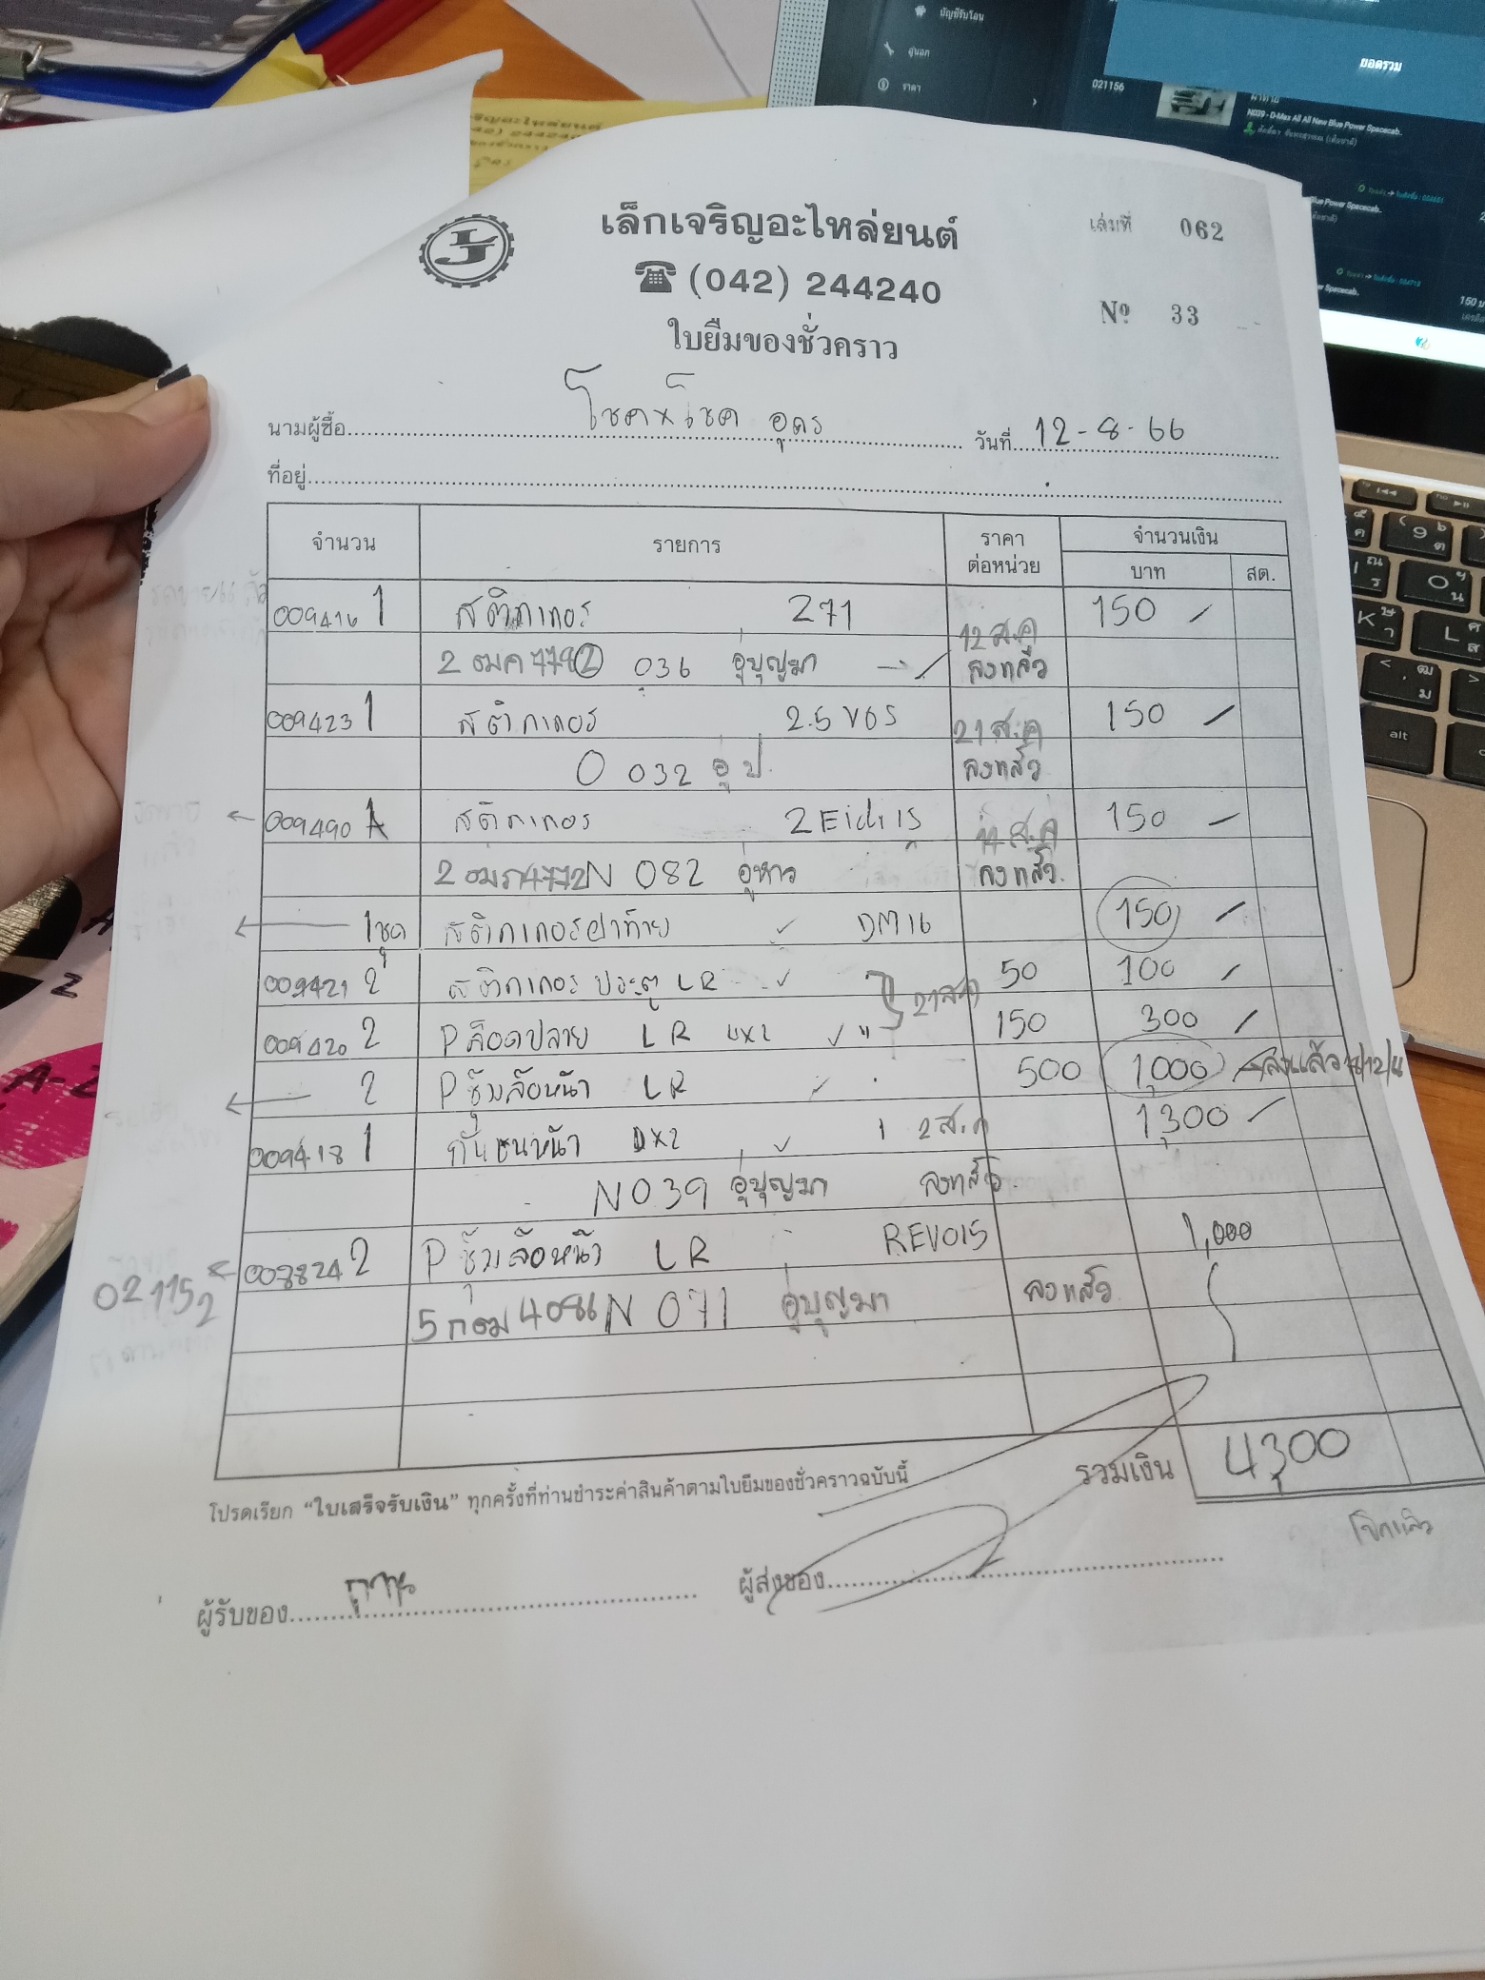 บัญชีรับโอน
ราคา
021156
ยอดรวม
N039 - D-Max All All New Blue Power Spacecab.
เล็กเจริญอะไหล่ยนต์
เล่มที่ 062
☎ (042) 244240
Nº 33
ใบยืมของชั่วคราว
นามผู้ซื้อ โชค x โชค อุดร วันที่ 12-8-66
ที่อยู่
จำนวน รายการ ราคาต่อหน่วย จำนวนเงิน
บาท สต.
009416 1 สติกเกอร์ 271 12 ส.ค 150 -
036 อู่บุญมา ลงแล้ว
009423 1 สติกเกอร์ 2.5 VGS 21 ส.ค 150 -
0 032 อู่ ป. ลงแล้ว
009490 1 สติกเกอร์ 150 -
N 082 อู่หาว ลงแล้ว
1ชุด สติกเกอร์ฝาท้าย DM16 150 -
009421 2 สติกเกอร์ ประตู LR 21 ส.ค 50 100 -
009420 2 P ล็อดปลาย LR 4x2 " 150 300 -
2 P ซุ้มล้อหน้า LR 500 1,000 - ลงแล้ว
009418 1 กันชนหน้า DX2 2 ส.ค 1,300 -
N039 อู่บุญมา ลงแล้ว
008824 2 P ซุ้มล้อหน้า LR REVO15 1,000
021152
N 071 อู่บุญมา ลงแล้ว
รวมเงิน 4,300
โปรดเรียก “ใบเสร็จรับเงิน” ทุกครั้งที่ท่านชำระค่าสินค้าตามใบยืมของชั่วคราวฉบับนี้
ผู้รับของ
ผู้ส่งของ